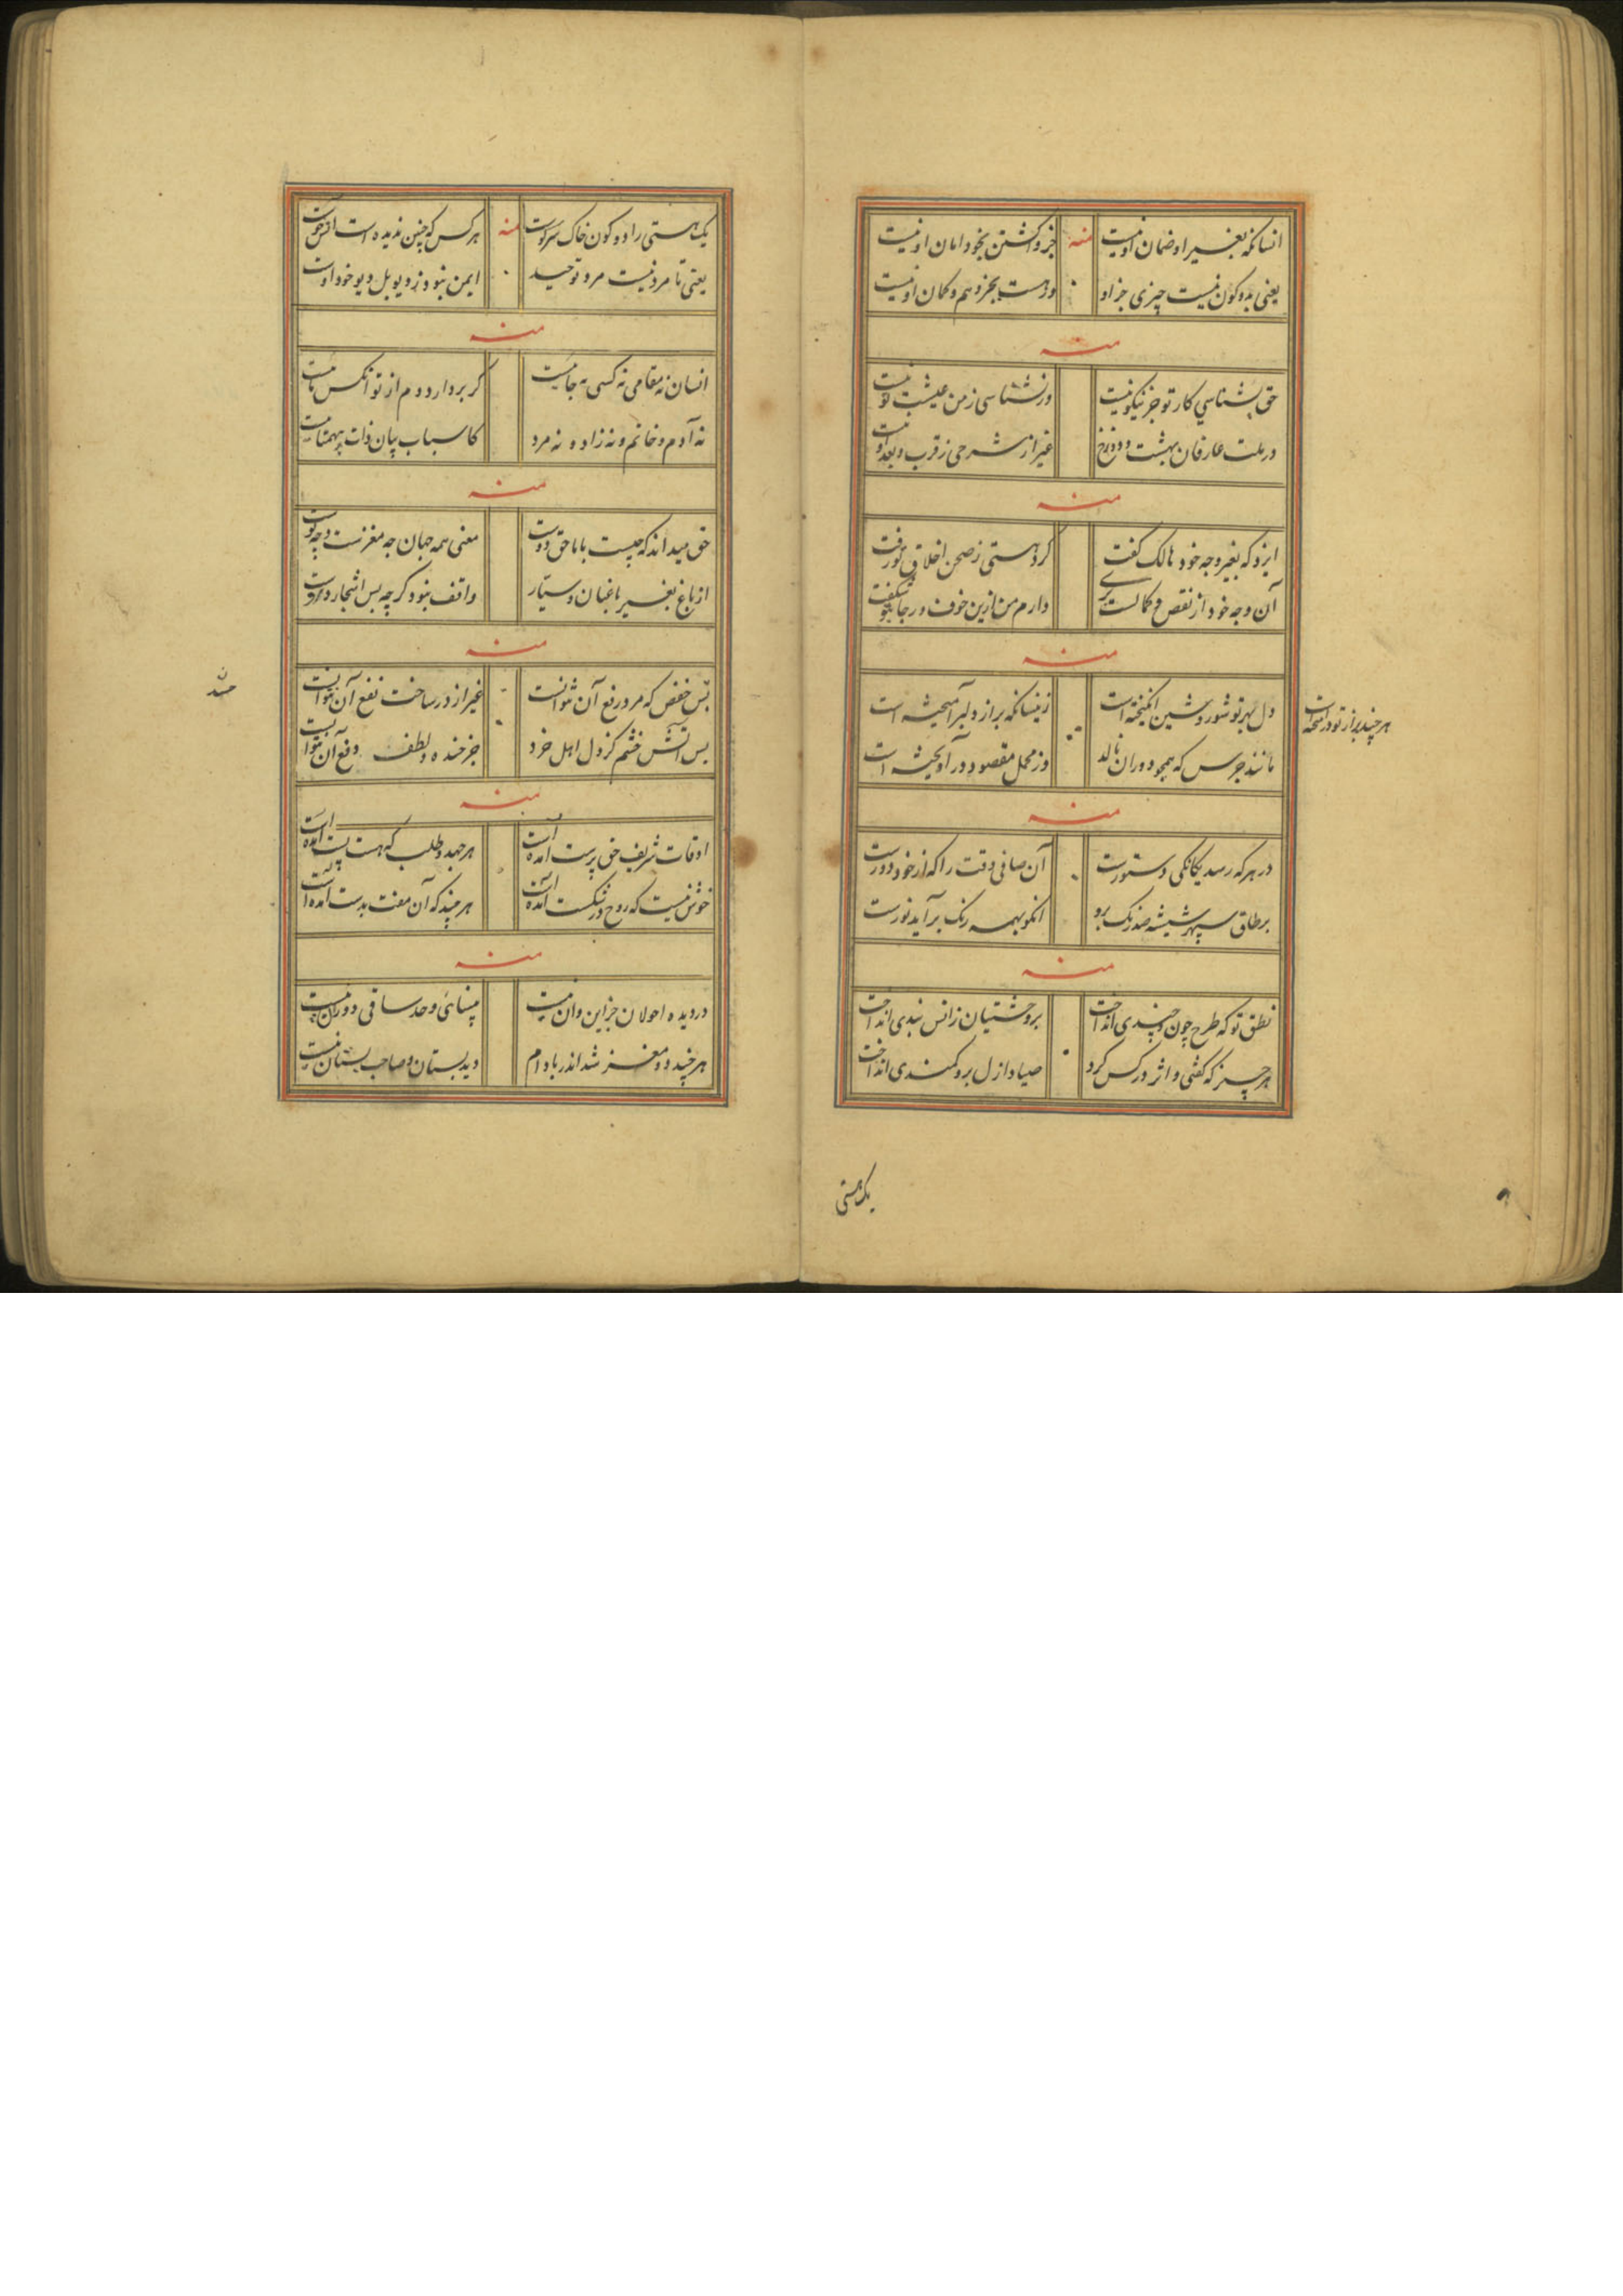 انسانکه بغیر او ضمان او نیست
منه
جز واکشتن بخود امان او نیست
یعنی بدو کون نیست چیزی جز او
ور هست بجز وهم و کمان او نیست
منه
حق بشناسی کار تو جز نیکو نیست
ورنشناسی زمن عیشت تو نیست
در ملت عارفان بهشت و دوزخ
غیر از شرحی ز قرب و بعد او نیست
منه
ایزد که بغیر وجه خود هالک کفت
کرد هستی ز صحن اخلاق تو رفت
آن وجه خود از نقص و کمالست بری
دارم من ازین خوف و رجا
منه
دل بهر تو شور و شین انکیخته است
زینسانکه براز دلبر آمیخته است
هر چند براز تو در آمیخته است
مانند جرس که همچو دوران نالد
وز محمل مقصود در آویخته است
منه
در هر که رسد یکانکی دستورست
آن صافی وقت را که از خود دورست
بر طاق سپهر شیشه صد رنک برو
انکو بهمه رنک برآید نورست
منه
نطق تو که طرح چون و چندی انداخت
بر وحشتیان ز انس بندی انداخت
هر چیز که کفتی و اثر در کس کرد
صیاد ازل برو کمندی انداخت
یک هستی
یک هستی را دو کون خاک سر کوست
منه
هر کس که چنین ندیده است
یعنی تا مرد نیست مرد توحید
ایمن نبود ز دیو بل دیو خود اوست
منه
انسان نه مقامی نه کسی نه جائیست
کر بردارد دم از تو انکس
نه آدم و خانم و نه زاد و نه مرد
کاسباب بیان ذات بیهمتائیست
منه
حق میداند که چیست بابا حق دوست
معنی همه جهان چه مغزست و چه پوست
از باغ بغیر باغبان و ستار
واقف نبود کرچه بس اشجار دروست
منه
بس خفض که مرد رفع آن نتوانست
غیر از در ساخت نفع آن نتوانست
بس آتش خشم کز دل اهل خرد
جز خنده و لطف دفع آن نتوانست
منه
اوقات شریف حق پرست آمده است
هر جهد و طلب که هست پست آمده است
خوش نیست که روح در شکست آمده است
هر چند که آن مفت بدست آمده است
منه
در دیده احولان جز این و ان نیست
بینائی وحد ساقی دوران نیست
هر چند دو مغز شد اندر بادام
دید بستان و صاحب بستان نیست